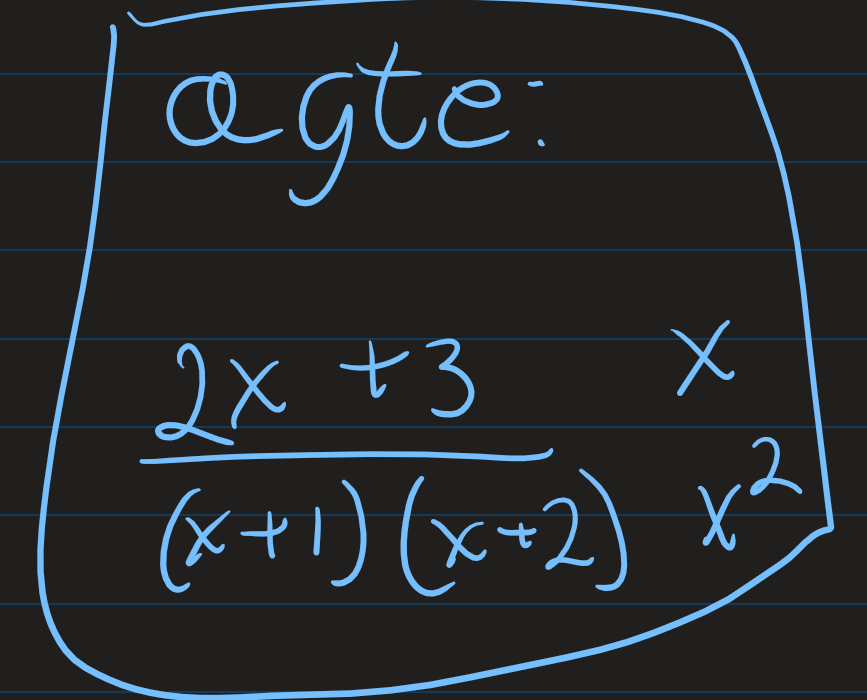 agte:
2x + 3 x
(x+1)(x+2) x²